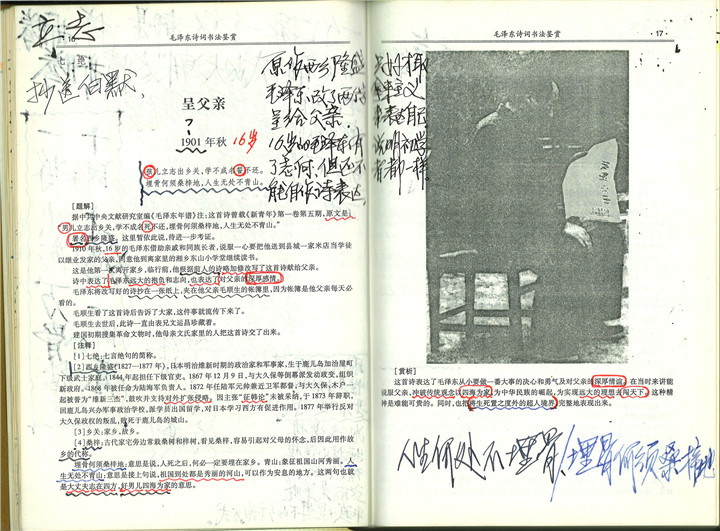 立志
16
毛泽东诗词书法鉴赏
抄送伯默
原作西乡隆盛
毛泽东改了两行
呈给父亲.
16岁的毛泽东有
了志向,但还不
能自作诗表达
呈父亲
?
1901年秋 16岁
孩儿立志出乡关,学不成名誓不还。
埋骨何须桑梓地,人生无处不青山。
[题解]
据中共中央文献研究室编《毛泽东年谱》注:这首诗曾载《新青年》第一卷第五期,原文是:
“男儿立志出乡关,学不成名死不还,埋骨何须桑梓地,人生无处不青山。”
署名西乡隆盛。这里暂依此说,待进一步考证。
1910年秋,16岁的毛泽东借助亲戚和同族长者,说服一心要把他送到县城一家米店当学徒
以继业发家的父亲,同意他到离家里的湘乡东山小学堂继续读书。
这是他第一次离开家乡,临行前,他根据前人的诗略加修改写了这首诗献给父亲。
诗中表达了毛泽东远大的抱负和志向,也表达了对父亲的深厚感情。
毛泽东将改写好的诗抄在一张纸上,夹在他父亲毛顺生的帐簿里,因为帐簿是他父亲每天必
看的。
毛顺生看了这首诗后告诉了大家,这件事就流传下来了。
毛顺生去世后,此诗一直由表兄文运昌珍藏着。
建国初期搜集革命文物时,他母亲文氏家里的人把这首诗交了出来。
[注释]
[1]七绝:七言绝句的简称。
[2]西乡隆盛(1827—1877年),日本明治维新时期的政治家和军事家,生于鹿儿岛加治屋町
下级武士家庭。1844年起担任下级官吏。1867年12月9日,与大久保等倒幕派发动政变,组织
新政府。1868年被任命为陆海军负责人。1872年任陆军元帅兼近卫军都督;与大久保、木户一
起被誉为“维新三杰”。鼓吹并支持对外扩张侵略。因主张“征韩论”未被采纳,于1873年辞职,
回鹿儿岛兴办军事政治学校,派学员出国留学,对日本学习西方有促进作用。1877年举行反对
大久保政权的叛乱,战死于鹿儿岛的城山。
[3]乡关:家乡,故乡。
[4]桑梓:古代家宅旁边常栽桑树和梓树,看见桑梓,容易引起对父母的怀念,后因此用作故
乡的代称。
埋骨何须桑梓地:意思是说,人死之后,何必一定要埋在家乡。青山:象征祖国山河秀丽。人
生无处不青山:意思是接上句说,祖国到处都是秀丽的河山,可以作为安息的地方。这两句也就
是大丈夫志在四方,好男儿四海为家的意思。
毛泽东诗词书法鉴赏
·17·
表达自己
说明初学
者都一样
[赏析]
这首诗表达了毛泽东从小要做一番大事的决心和勇气及对父亲的深厚情谊。在当时来讲能
说服父亲,冲破传统观念以四海为家,为中华民族的崛起,为实现远大的理想去闯天下。这种精
神是难能可贵的。同时,也把将生死置之度外的超人境界,完整地表现出来。
人生何处不埋骨,埋骨何须桑梓地